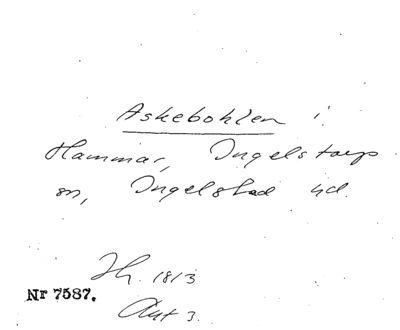 Askebohlen i
Hammar, Ingelstorps
sn, Ingelstad hd.
Jh. 1813
Nr 7587.
Akt 3.